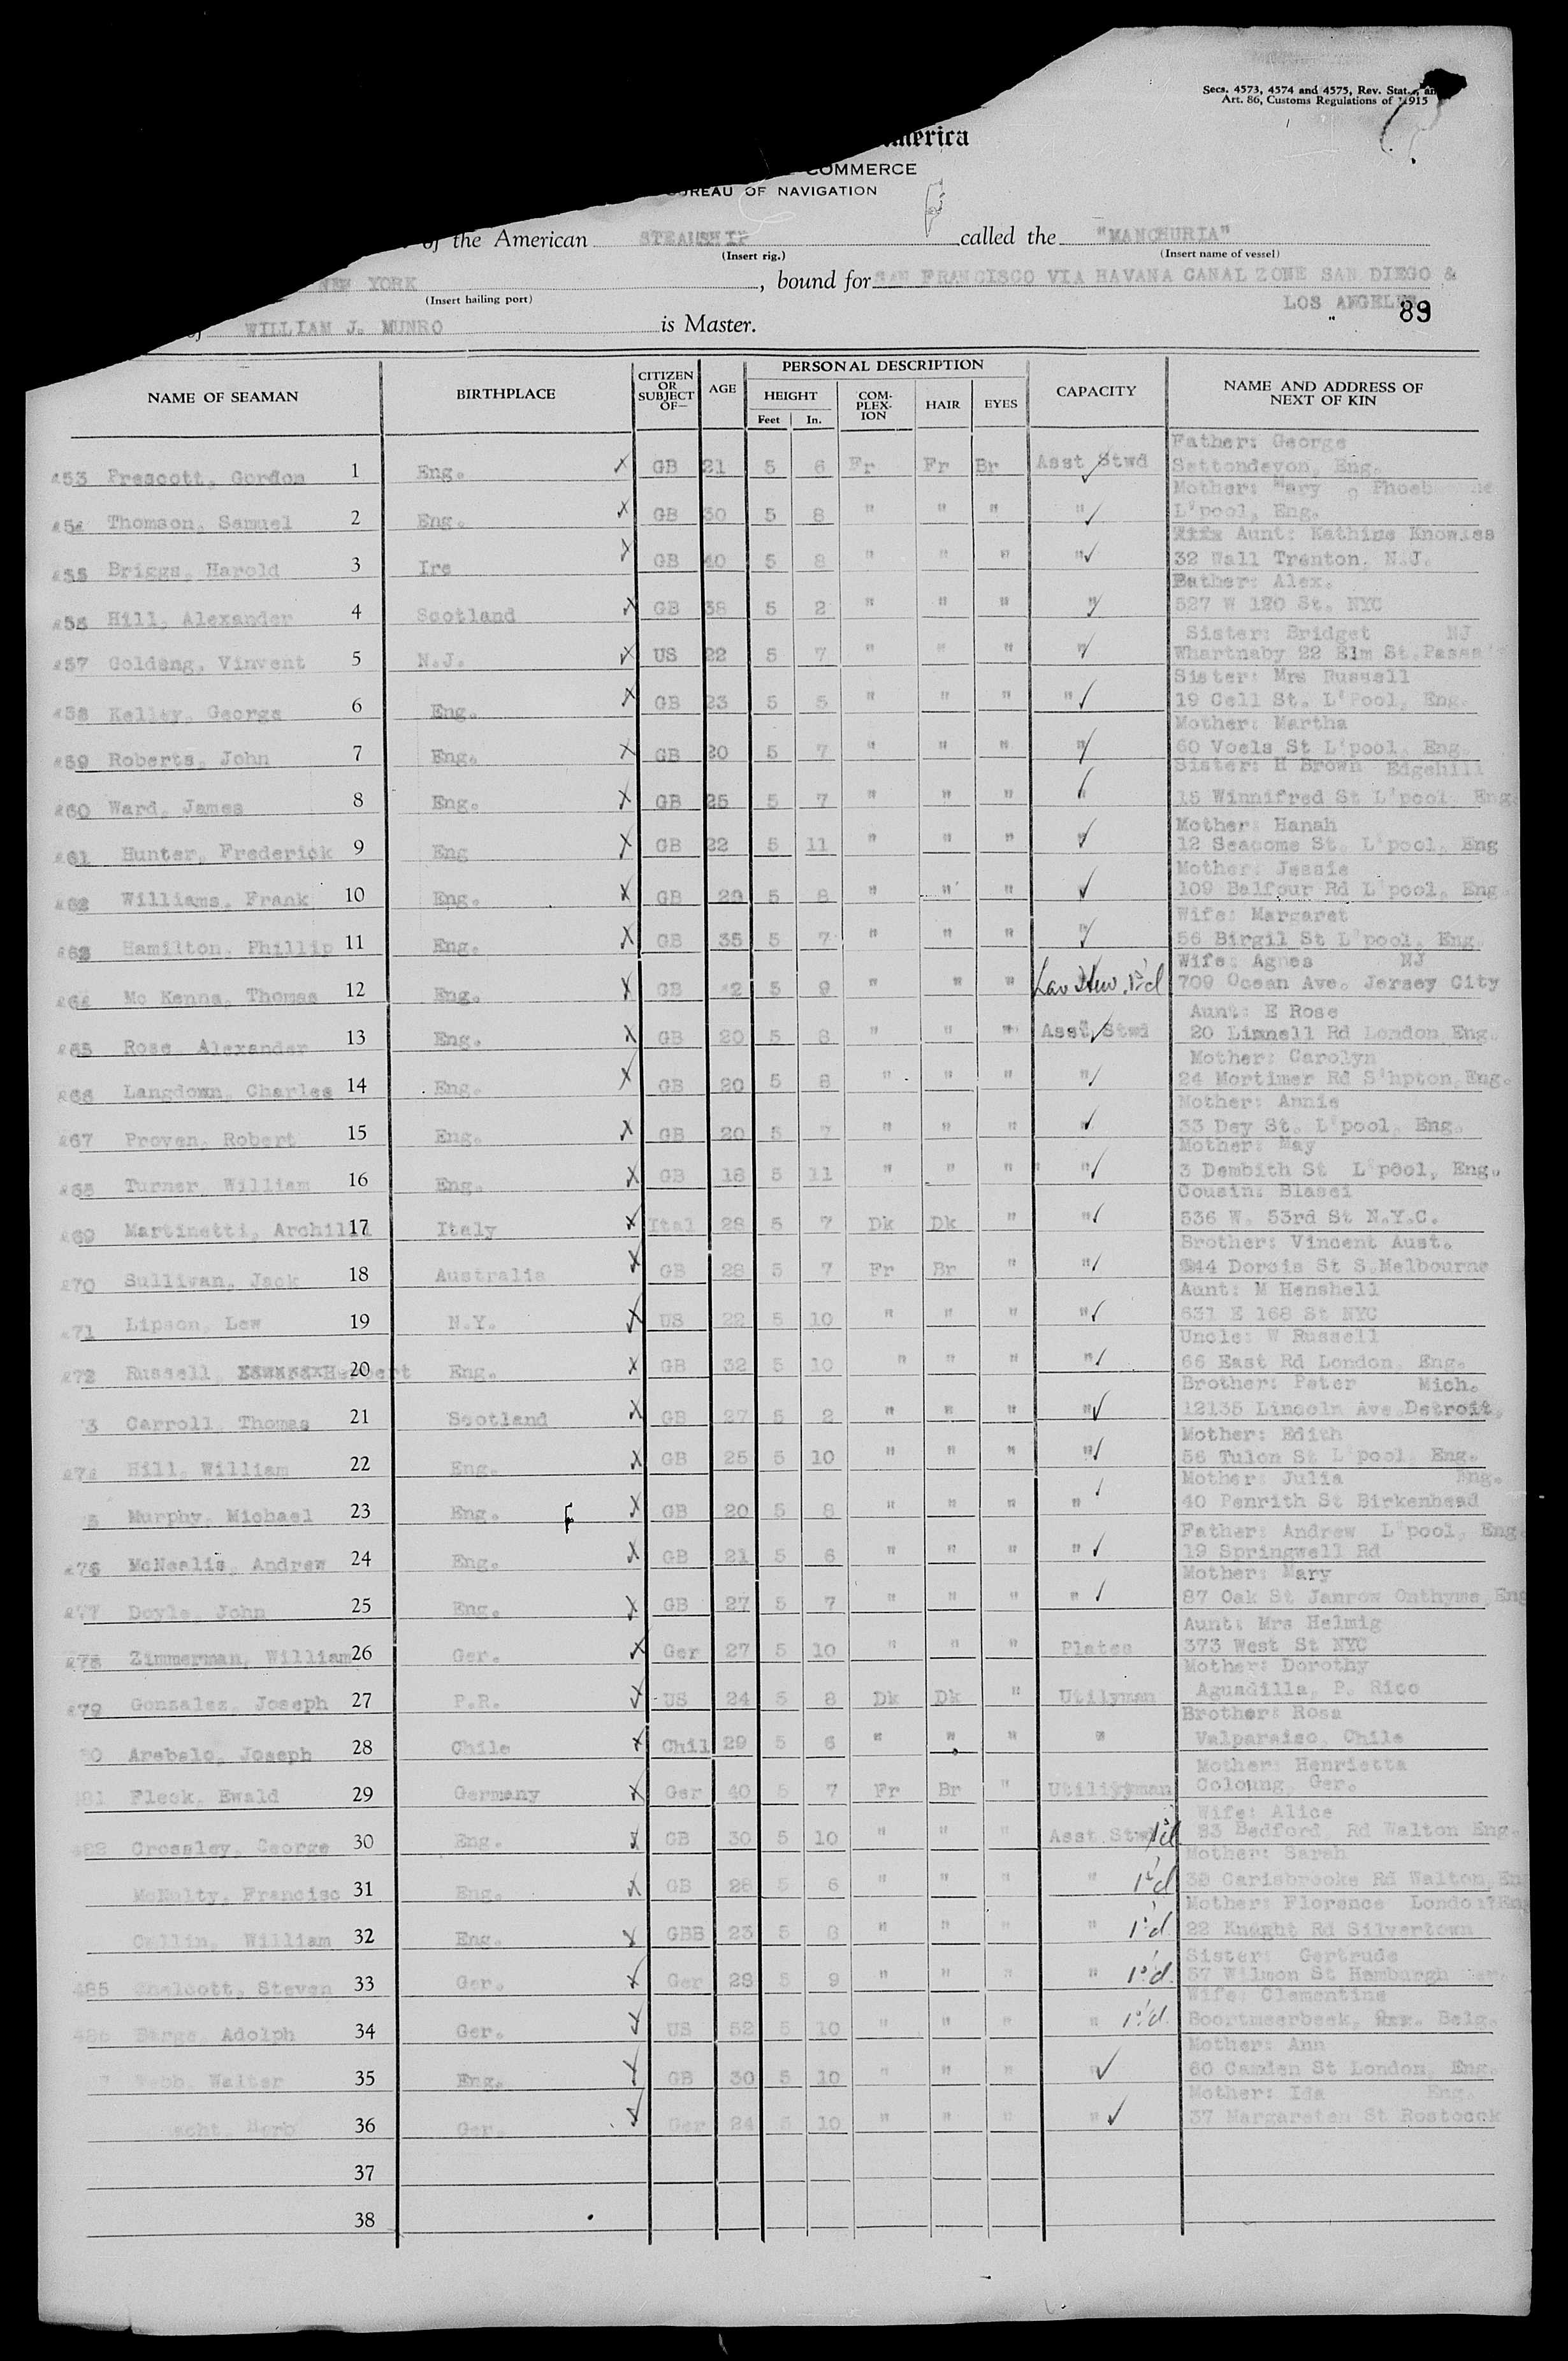 Secs. 4573, 4574 and 4575, Rev. Stat., an
Art. 86, Customs Regulations of 1915
merica
COMMERCE
BUREAU OF NAVIGATION
of the American STEAMSHIP called the "MANCHURIA"
(Insert rig.) (Insert name of vessel)
NEW YORK , bound for SAN FRANCISCO VIA HAVANA CANAL ZONE SAN DIEGO &
(Insert hailing port) LOS ANGELES
of WILLIAM J. MUNRO is Master. 89
NAME OF SEAMAN BIRTHPLACE CITIZEN OR SUBJECT OF— AGE PERSONAL DESCRIPTION CAPACITY NAME AND ADDRESS OF NEXT OF KIN
HEIGHT COM-PLEX-ION HAIR EYES
Feet In.
Father: George
453 Prescott, Gordon 1 Eng. X GB 21 5 6 Fr Fr Br Asst Stwd ✓ Settondevon, Eng.
Mother: Mary
454 Thomson, Samuel 2 Eng. X GB 30 5 8 " " " " ✓ L'pool, Eng.
Aunt: Kathine Knowles
455 Briggs, Harold 3 Ire X GB 40 5 8 " " " " ✓ 32 Wall Trenton, N.J.
Father: Alex.
456 Hill, Alexander 4 Scotland X GB 38 5 2 " " " " ✓ 527 W 120 St. NYC
Sister: Bridget NJ
457 Goldeng, Vinvent 5 N.J. X US 22 5 7 " " " " ✓ Whartnaby 22 Elm St. Passa
Sister: Mrs Russell
458 Kelley, George 6 Eng. X GB 23 5 5 " " " " ✓ 19 Cell St. L'Pool, Eng.
Mother: Martha
459 Roberts, John 7 Eng. X GB 20 5 7 " " " " ✓ 60 Voels St L'pool, Eng.
Sister: H Brown Edgehill
460 Ward, James 8 Eng. X GB 25 5 7 " " " " ✓ 15 Winnifred St L'pool, Eng.
Mother: Hanah
461 Hunter, Frederick 9 Eng X GB 22 5 11 " " " " ✓ 12 Seacome St. L'pool, Eng
Mother: Jessie
462 Williams, Frank 10 Eng. X GB 29 5 8 " " " " ✓ 109 Balfour Rd L'pool, Eng.
Wife: Margaret
463 Hamilton, Phillip 11 Eng. X GB 35 5 7 " " " " ✓ 56 Birgil St L'pool, Eng.
Wife: Agnes NJ
464 Mc Kenna, Thomas 12 Eng. X GB 42 5 9 " " " 709 Ocean Ave. Jersey City
Aunt: E Rose
465 Rose, Alexander 13 Eng. X GB 20 5 8 " " " Asst Stwd ✓ 20 Linnell Rd London, Eng.
Mother: Carolyn
466 Langdown, Charles 14 Eng. X GB 20 5 8 " " " " ✓ 24 Mortimer Rd S'hpton, Eng.
Mother: Annie
467 Proven, Robert 15 Eng. X GB 20 5 7 " " " " ✓ 33 Dey St. L'pool, Eng.
Mother: May
468 Turner, William 16 Eng. X GB 18 5 11 " " " " ✓ 3 Dembith St L'pool, Eng.
Cousin: Blasei
469 Martinetti, Archilli 17 Italy X Ital 28 5 7 Dk Dk " " ✓ 536 W. 53rd St N.Y.C.
Brother: Vincent Aust.
470 Sullivan, Jack 18 Australia X GB 28 5 7 Fr Br " " ✓ 344 Dorcis St S.Melbourne
Aunt: M Henshell
471 Lipson, Lew 19 N.Y. X US 22 5 10 " " " " ✓ 631 E 168 St NYC
Uncle: W Russell
472 Russell, Herbert 20 Eng. X GB 32 5 10 " " " " ✓ 66 East Rd London, Eng.
Brother: Peter Mich.
3 Carroll, Thomas 21 Scotland X GB 27 5 2 " " " " ✓ 12135 Lincoln Ave. Detroit,
Mother: Edith
474 Hill, William 22 Eng. X GB 25 5 10 " " " " ✓ 56 Tulon St L'pool, Eng.
Mother: Julia Eng.
5 Murphy, Michael 23 Eng. X GB 20 5 8 " " " " ✓ 40 Penrith St Birkenhead
Father: Andrew L'pool, Eng
476 McNealis, Andrew 24 Eng. X GB 21 5 6 " " " " ✓ 19 Springwell Rd
Mother: Mary
477 Doyle, John 25 Eng. X GB 27 5 7 " " " " ✓ 87 Oak St Janrow Onthyms, Eng
Aunt: Mrs Helmig
478 Zimmerman, William 26 Ger. X Ger 27 5 10 " " " Plates 373 West St NYC
Mother: Dorothy
479 Gonzalez, Joseph 27 P.R. X US 24 5 8 Dk Dk " Utilyman Aguadilla, P. Rico
Brother: Rosa
80 Arebalo, Joseph 28 Chile X Chil 29 5 6 " " " " Valparaiso, Chile
Mother: Henrietta
481 Fleck, Ewald 29 Germany X Ger 40 5 7 Fr Br " Utilityman Coloung, Ger.
Wife: Alice
482 Crossley, George 30 Eng. X GB 30 5 10 " " " Asst Stwd 83 Bedford Rd Walton Eng.
Mother: Sarah
McNulty, Francisc 31 Eng. X GB 28 5 6 " " " " 39 Carisbrooke Rd Walton, Eng
Mother: Florence London Eng
Cullin, William 32 Eng. X GBB 23 5 8 " " " " 22 Knaght Rd Silvertown
Sister: Gertrude
485 Chalcott, Steven 33 Ger. X Ger 28 5 9 " " " " 57 Wilmon St Hamburgh
Wife: Clementine
486 Adolph 34 Ger. X US 52 5 10 " " " " Boortmeerbeek, Belg.
Mother: Ann
7 Webb, Walter 35 Eng. X GB 30 5 10 " " " " ✓ 60 Camden St London, Eng.
Mother: Ida Eng.
acht, Herb 36 Ger. X Ger 24 5 10 " " " " ✓ 37 Margareten St Rostocck
37
38